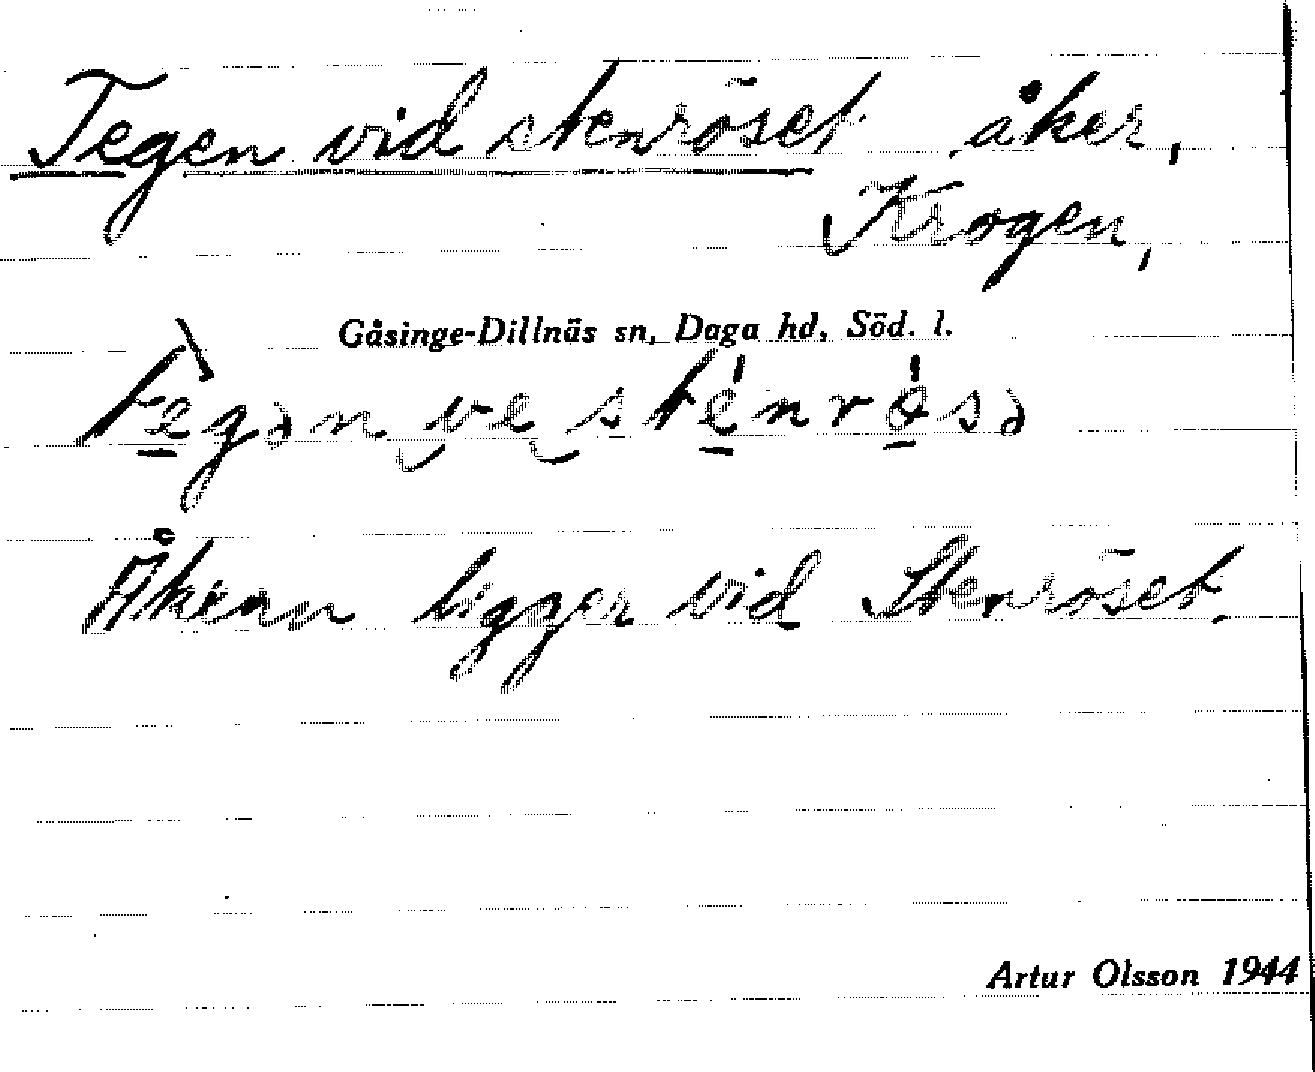 Tegen vid stenröset åker,
Krogen,
Gåsinge-Dillnäs sn, Daga hd, Söd. l.
tègən ve sténrósə
Åkern ligger vid Stenröset.
Artur Olsson 1944